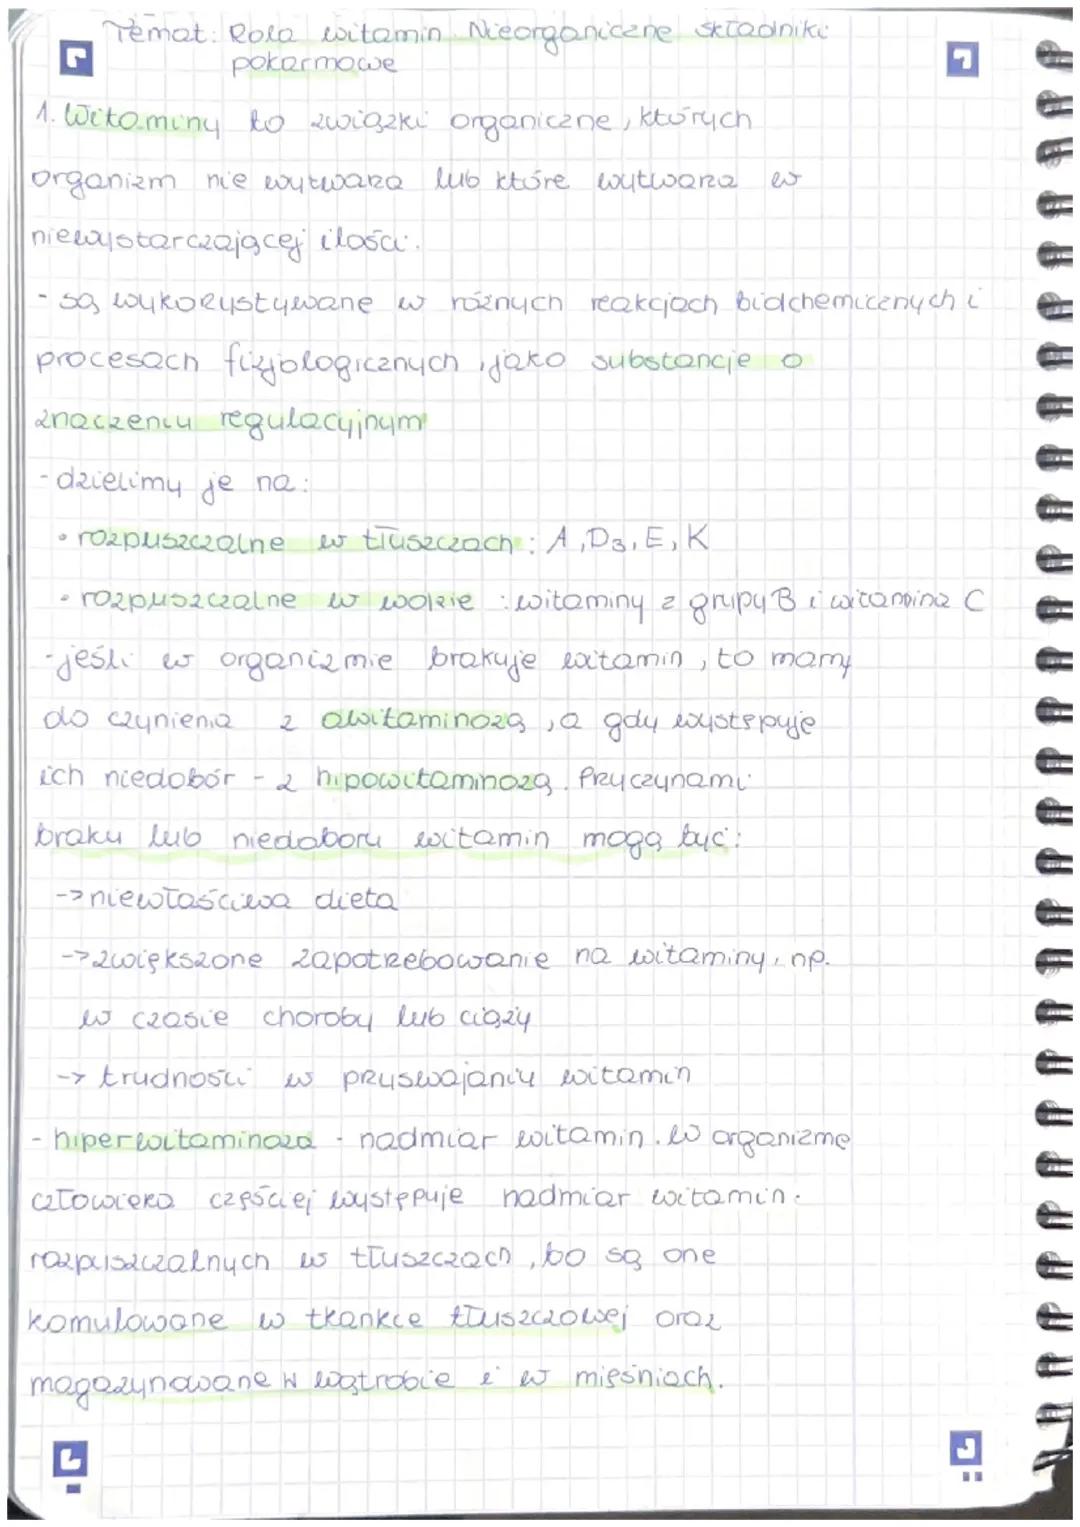 Temat: Rola witamin. Nieorganiczne składniki
pokarmowe
1. Witaminy to związki organiczne, których
organizm nie wytwarza lub które wytwarza w
niewystarczającej ilości.
- są wykorzystywane w różnych reakcjach biochemicznych i
procesach fizjologicznych, jako substancje o
znaczeniu regulacyjnym
- dzielimy je na:
• rozpuszczalne w tłuszczach: A, D3, E, K
• rozpuszczalne w wodzie: witaminy z grupy B i witamina C
- jeśli w organizmie brakuje witamin, to mamy
do czynienia z awitaminozą, a gdy występuje
ich niedobór - z hipowitaminozą. Przyczynami
braku lub niedoboru witamin mogą być:
-> niewłaściwa dieta
-> zwiększone zapotrzebowanie na witaminy, np.
w czasie choroby lub ciąży
-> trudności w przyswajaniu witamin
- hiperwitaminoza - nadmiar witamin. W organizme
człowieka częściej występuje nadmiar witamin
rozpuszczalnych w tłuszczach, bo są one
komulowane w tkance tłuszczowej oraz
magazynowane w wątrobie i w mięśniach.